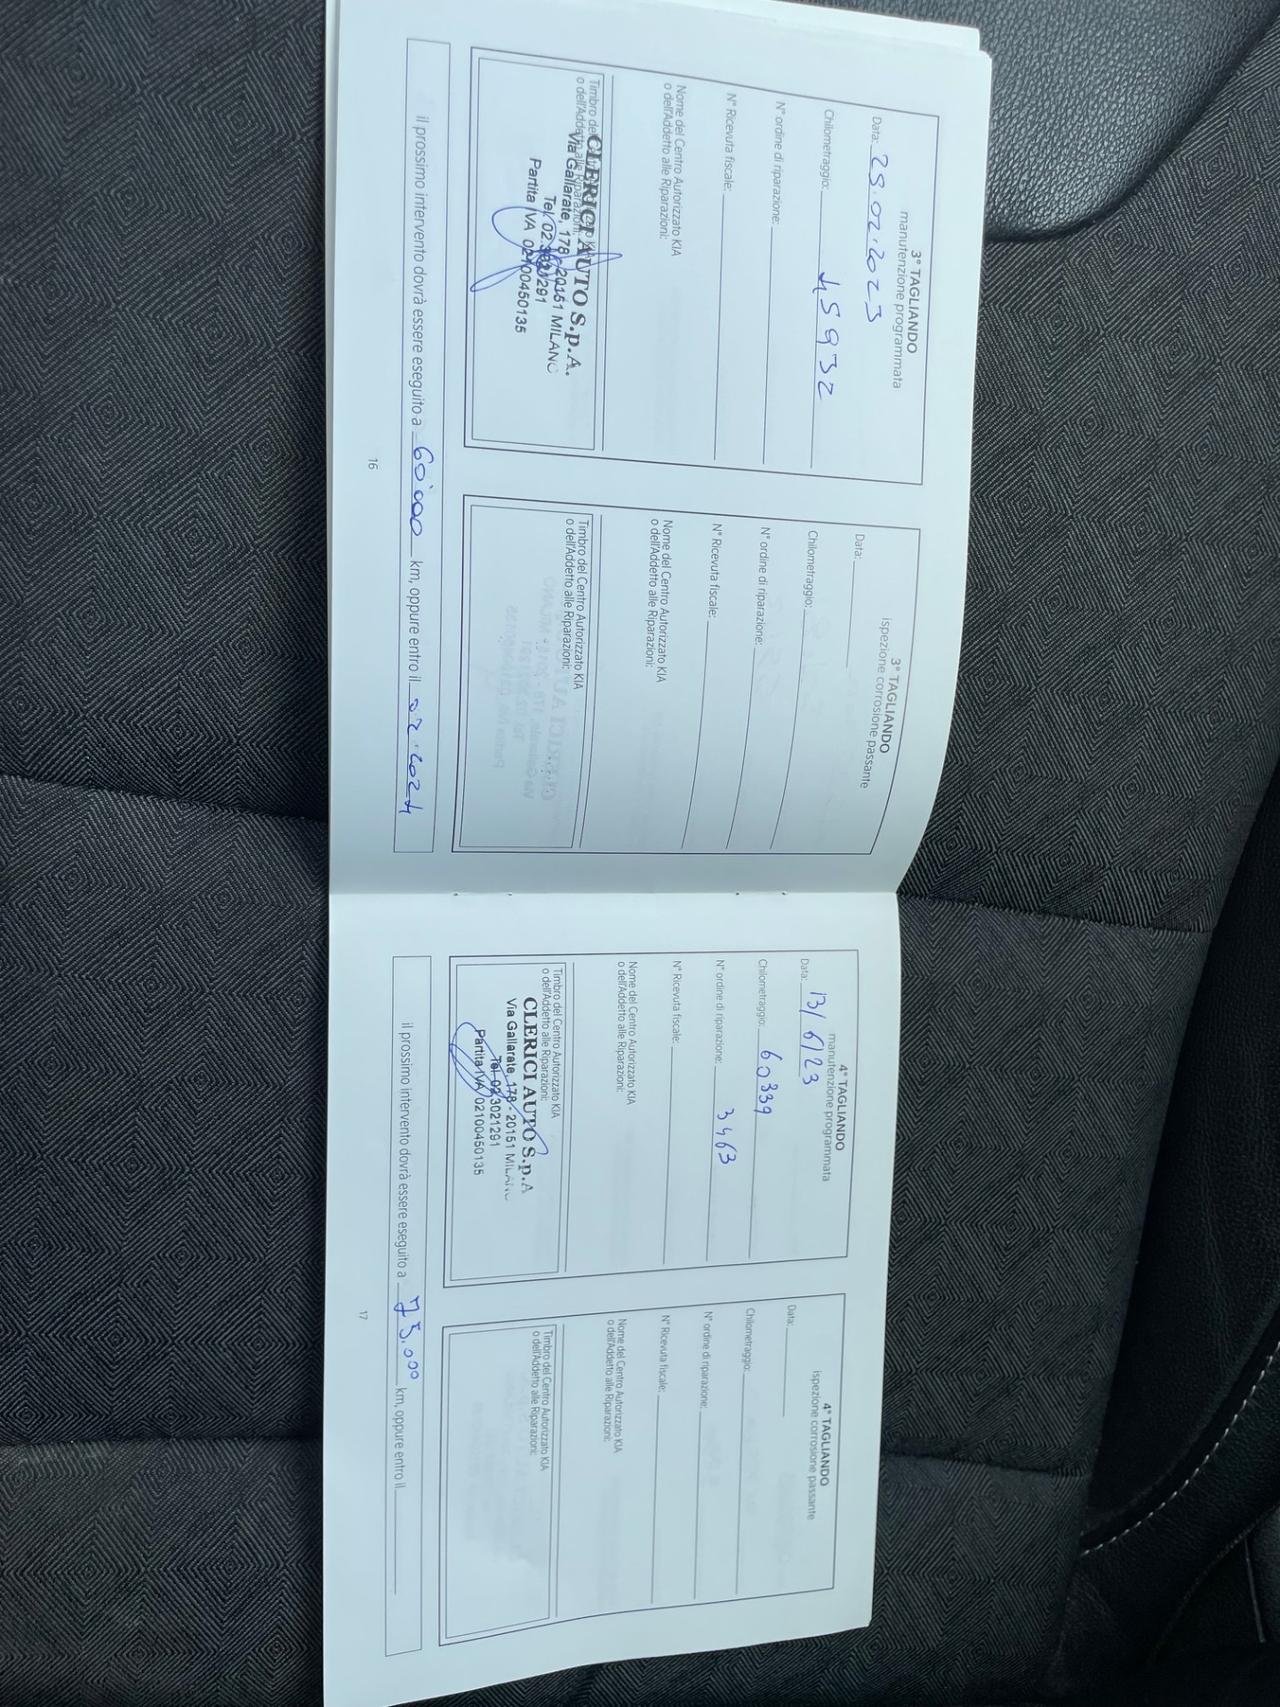 3° TAGLIANDO
manutenzione programmata
Data: 28.02.2023
Chilometraggio: 45932
N° ordine di riparazione:
N° Ricevuta fiscale:
Nome del Centro Autorizzato KIA
o dell'Addetto alle Riparazioni:
Timbro del
o dell'Addetto alle Riparazioni:
CLERICI AUTO S.p.A.
Via Gallarate, 178 - 20151 MILANO
Tel. 02.3021291
Partita IVA 02100450135
3° TAGLIANDO
ispezione corrosione passante
Data:
Chilometraggio:
N° ordine di riparazione:
N° Ricevuta fiscale:
Nome del Centro Autorizzato KIA
o dell'Addetto alle Riparazioni:
Timbro del Centro Autorizzato KIA
o dell'Addetto alle Riparazioni:
il prossimo intervento dovrà essere eseguito a 60'000 km, oppure entro il 02.2024
16
4° TAGLIANDO
manutenzione programmata
Data: 13/6/23
Chilometraggio: 60339
N° ordine di riparazione: 3463
N° Ricevuta fiscale:
Nome del Centro Autorizzato KIA
o dell'Addetto alle Riparazioni:
Timbro del Centro Autorizzato KIA
o dell'Addetto alle Riparazioni:
CLERICI AUTO S.p.A
Via Gallarate, 178 - 20151 MILANO
Tel. 02 3021291
Partita IVA 02100450135
4° TAGLIANDO
ispezione corrosione passante
Data:
Chilometraggio:
N° ordine di riparazione:
N° Ricevuta fiscale:
Nome del Centro Autorizzato KIA
o dell'Addetto alle Riparazioni:
Timbro del Centro Autorizzato KIA
o dell'Addetto alle Riparazioni:
il prossimo intervento dovrà essere eseguito a 75.000 km, oppure entro il
17